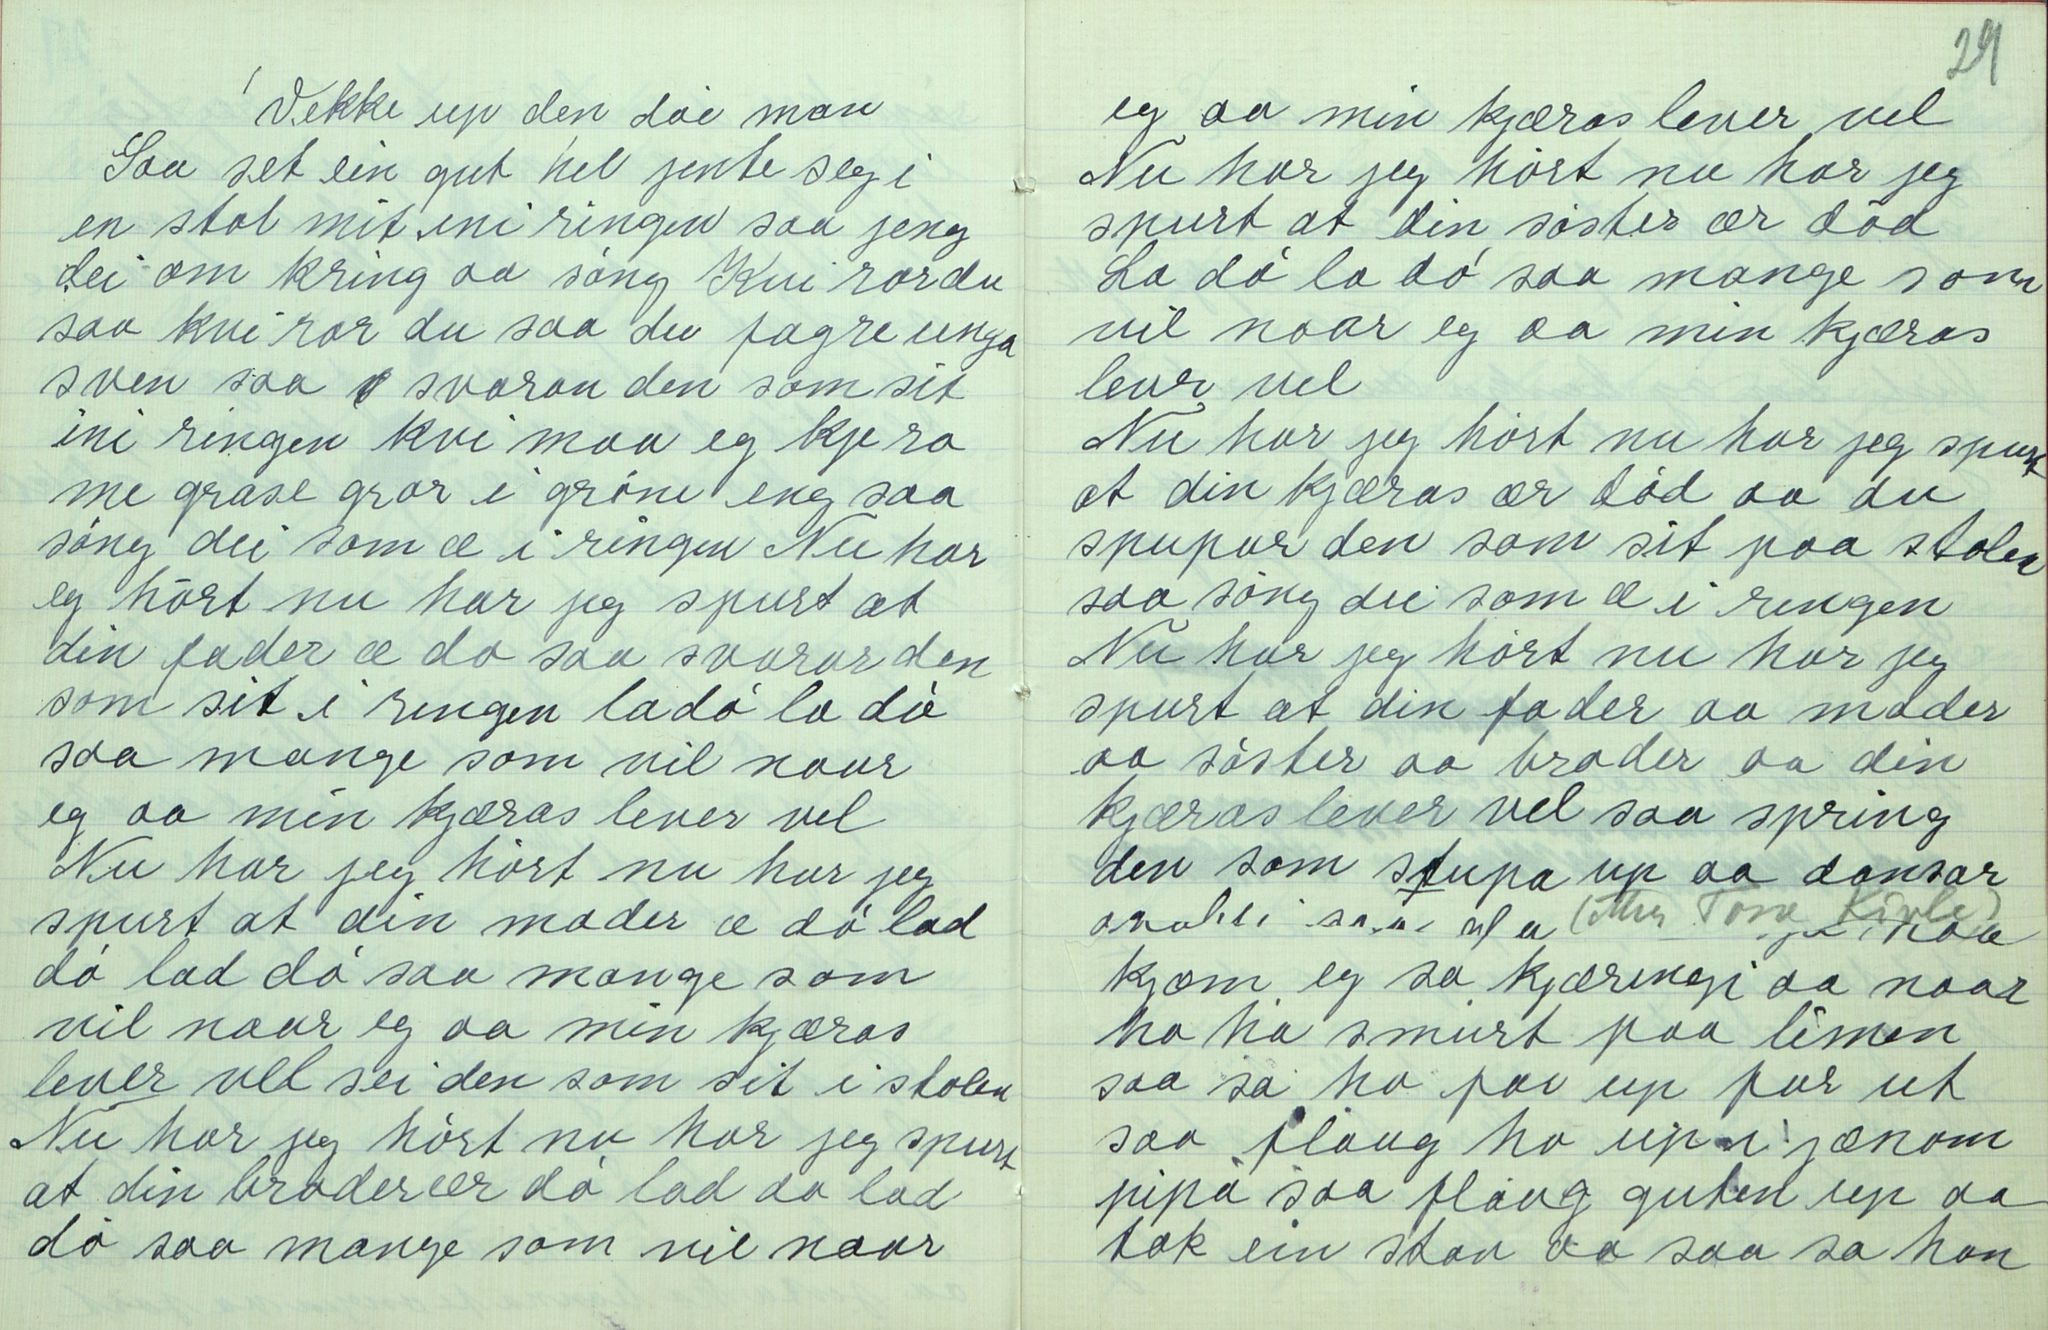 Vekke up den döe man
Saa set ein gut hel jente seg i
en stol mit ini ringen saa jeng
dei om kring aa söng Kvi rordu
saa kvi ror du saa du fagre unga
sven saa svaran den som sit
ini ringen kvi maa eg kje ro
me grase gror i gröne eng saa
söng dei som æ i ringen Nu har
eg hört nu har jeg spurt at
din fader æ dö saa svarar den
som sit i ringen la dö la dö
saa mange som vil naar
eg aa min kjæras lever vel
Nu har jeg hört nu har jeg
spurt at din moder æ dö lad
dö lad dö saa mange som
vil naar eg aa min kjæras
lever vel sei den som sit i stolen
Nu har jeg hört nu har jeg spurt
at din broder ær dö lad dö lad
dö saa mange som vil naar
29
eg aa min kjæras lever vel
Nu har jeg hört nu har jeg
spurt at din söster ær död
La dö la dö saa mange som
vil naar eg aa min kjæras
levr vel
Nu har jeg hört nu har jeg spurt
at din kjæras ær död aa du
spupar den som sit paa stolen
saa söng dei som æ i ringen
Nu har jeg hört nu har jeg
spurt at din fader aa moder
aa söster aa broder aa din
kjæras lever vel saa spring
den som stupa up aa dansar
(etter Tone Kivle)
kjæm eg sa kjæringi aa naar
ho ha smurt paa limen
saa sa ho far up far ut
saa flaug ho up i jænom
pipa saa flaug guten up aa
tok ein stav aa saa sa han